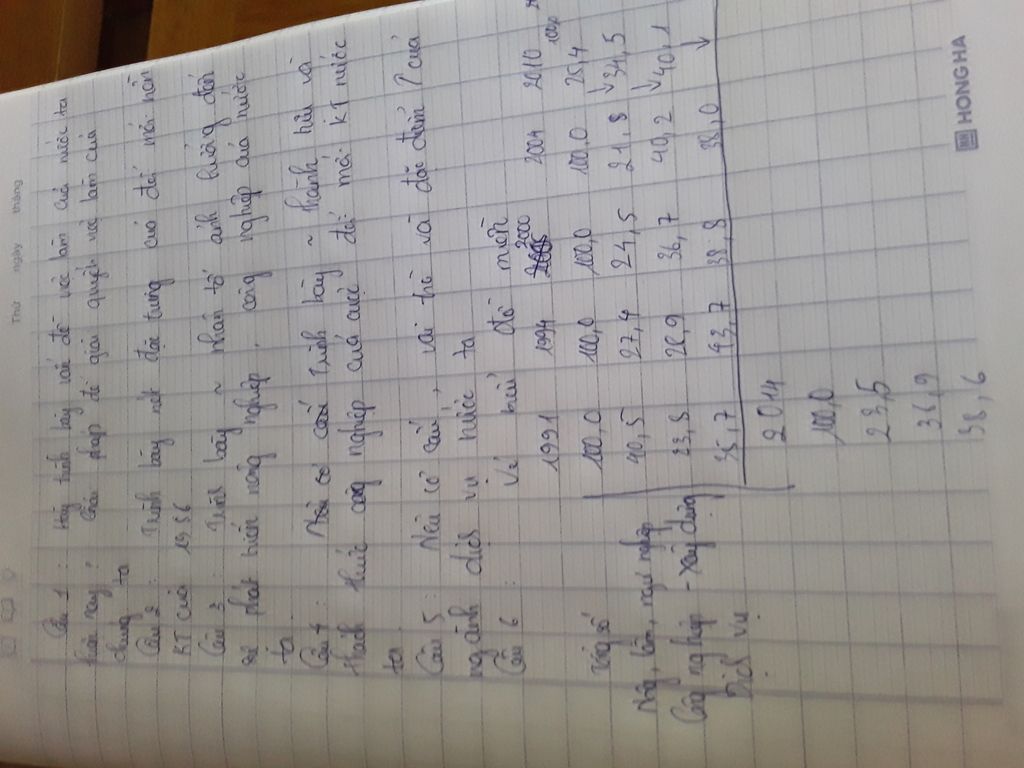 Thứ ngày tháng
Câu 1: Hãy trình bày vấn đề việc làm của nước ta
hiện nay? Giải pháp để giải quyết việc làm của
chúng ta
Câu 2: Trình bày nét đặc trưng của đổi mới nền
KT của 1986
Câu 3: Trình bày ~ nhân tố ảnh hưởng đến
sự phát triển nông nghiệp, công nghiệp của nước
ta.
Câu 4: Nêu cơ cấu Trình bày ~ thành tựu và
thách thức công nghiệp của cuộc đổi mới KT nước
ta
Câu 5: Nêu cơ cấu, vai trò và đặc điểm ? của
ngành dịch vụ nước ta
Câu 6: Vẽ biểu đồ miền
1991 1994 2000 2004 2010
Tổng số 100,0 100,0 100,0 100,0 100,0
Nông, lâm, ngư nghiệp 40,5 27,4 24,5 21,8 25,4
Công nghiệp - xây dựng 23,8 28,9 36,7 40,2 34,5
Dịch vụ 35,7 43,7 38,8 38,0 40,1
2014
100,0
23,5
36,9
38,6
HONG HA